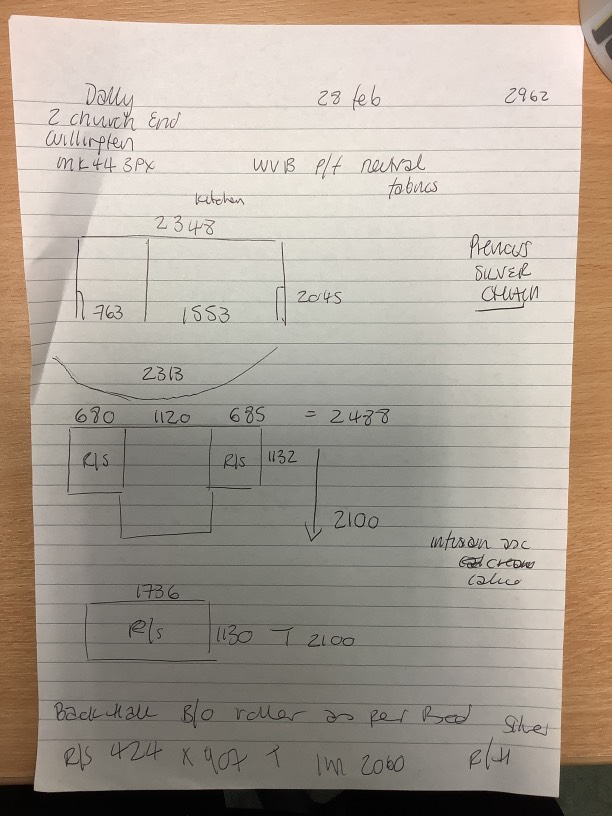 Dally 28 feb 2962
2 church End
Willington
MK44 3PX WVB P/t neutral
fabrics
kitchen
2348
Previous
SILVER
CHAIN
763 1553 2045
2313
680 1120 685 = 2488
R/s R/s 1132
2100
infusion asc
cream
calico
1736
R/s 1130 T 2100
Back Hall B/O roller as per Bed Silver
R/s 424 x 907 T 1m 2060 R/H